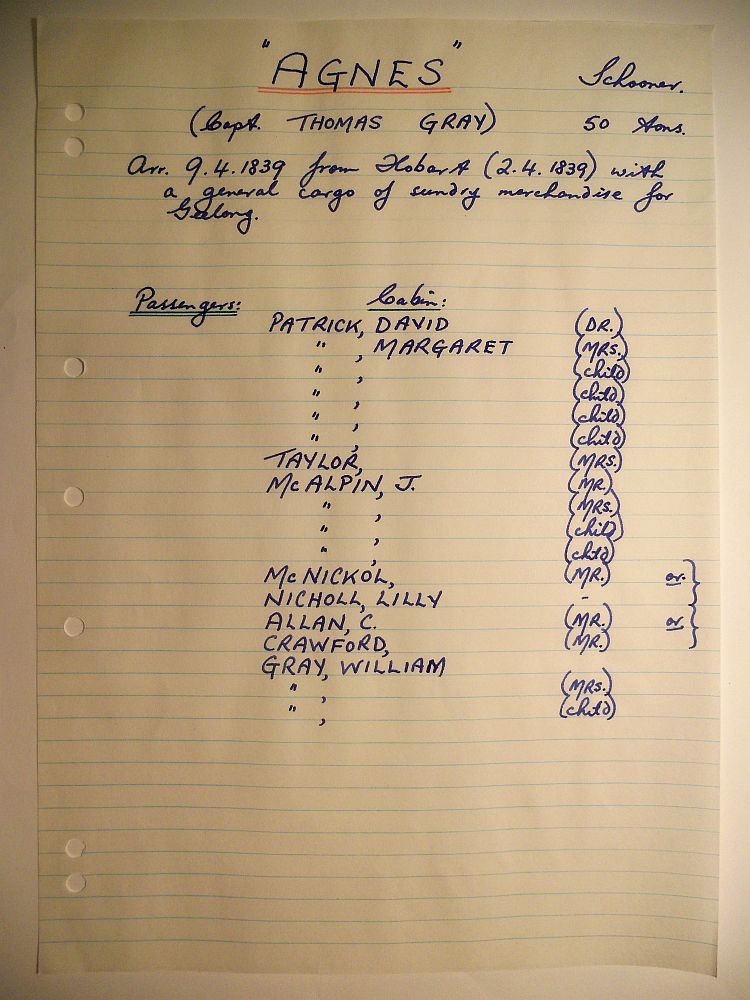 "AGNES" Schooner.
(Capt. THOMAS GRAY) 50 tons.
Arr. 9.4.1839 from Hobart (2.4.1839) with
a general cargo of sundry merchandise for
Geelong.
Passengers: Cabin:
PATRICK, DAVID (DR.)
" , MARGARET (MRS.)
" , (child)
" , (child)
" , (child)
" , (child)
TAYLOR, (MRS.)
McALPIN, J. (MR.)
" , (MRS.)
" , (child)
" , (child)
McNICKOL, (MR.) or }
NICHOLL, LILLY -
ALLAN, C. (MR.) or }
CRAWFORD, (MR.)
GRAY, WILLIAM
" , (MRS.)
" , (child)